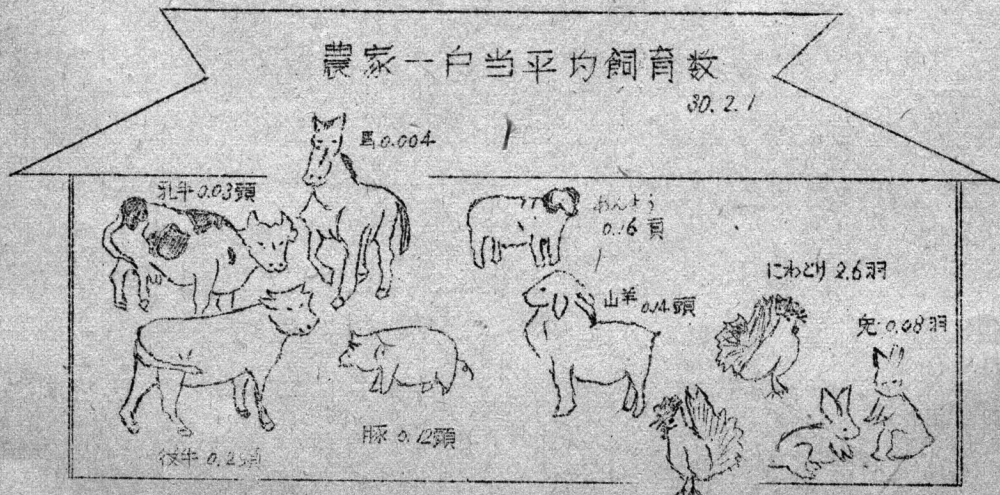 農家一戸当平均飼育数
30.2.1
馬 0.004
乳牛 0.03頭
めんよう
0.16頭
にわとり 2.6羽
山羊 0.14頭
兎 0.08羽
豚 0.12頭
役牛 0.2頭